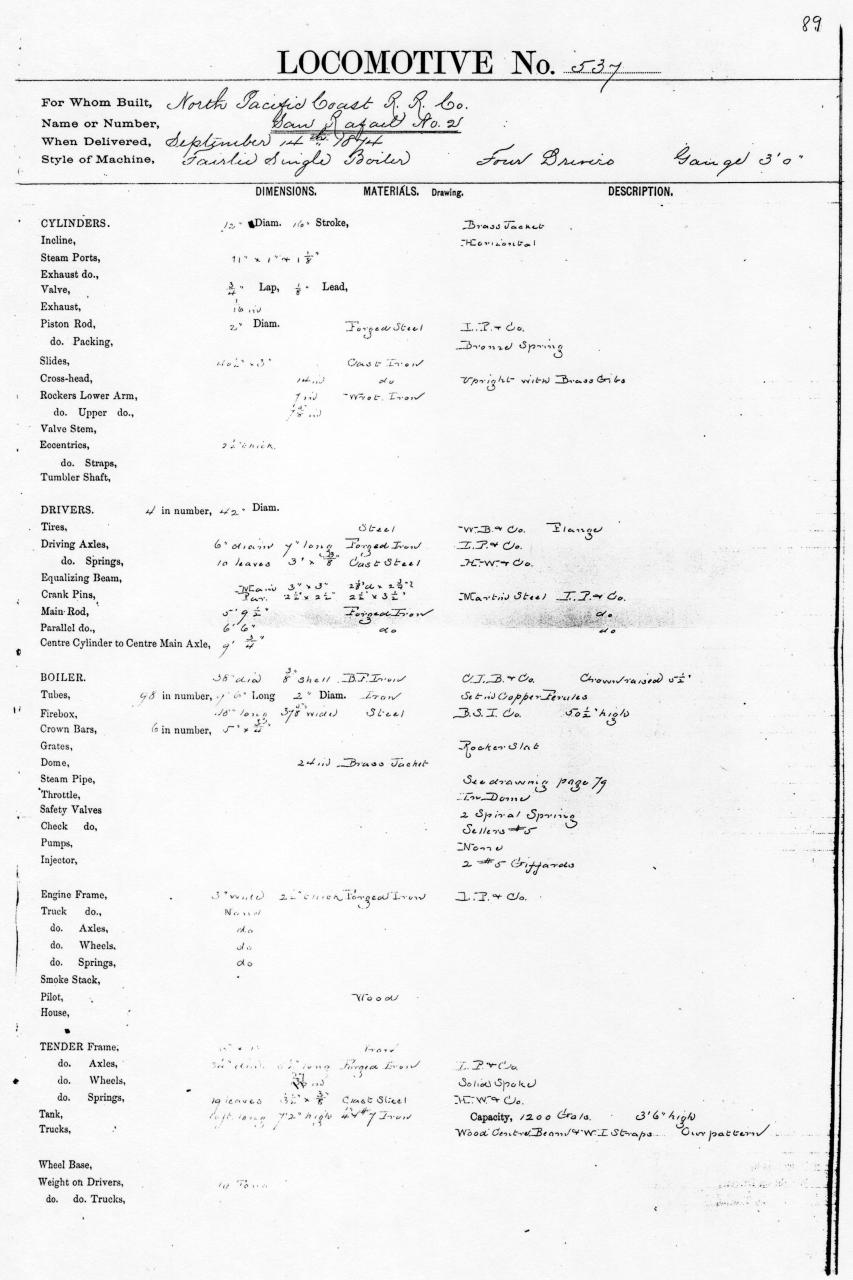 89
LOCOMOTIVE No. 537
For Whom Built, North Pacific Coast R. R. Co.
Name or Number, San Rafael No. 2
When Delivered, September 14th 1874
Style of Machine, Fairlie Single Boiler Four Drivers Gauge 3'0"
DIMENSIONS. MATERIALS. Drawing. DESCRIPTION.
CYLINDERS. 12" Diam. 16" Stroke, Brass Jacket
Incline, Horizontal
Steam Ports, 11" x 1" + 1 1/8"
Exhaust do.,
Valve, 3/4" Lap, 1/8" Lead,
Exhaust, 1/16 in
Piston Rod, 2" Diam. Forged Steel I. P. & Co.
do. Packing, Bronze Spring
Slides, 40 1/2" x 3" Cast Iron
Cross-head, 14 in do Upright with Brass Gibs
Rockers Lower Arm, 7 in Wrot. Iron
do. Upper do., in
Valve Stem,
Eccentrics, 2 1/2" thick.
do. Straps,
Tumbler Shaft,
DRIVERS. 4 in number, 42" Diam.
Tires, Steel W. B. & Co. Flange
Driving Axles, 6" diam 7" long Forged Iron I. P. & Co.
do. Springs, 10 leaves 3" x 3/8" Cast Steel H. W. & Co.
Equalizing Beam,
Crank Pins, Main 3" x 3"
Par. 2 1/2" x 2 1/2" 2 1/2" x 3 1/2" Martin Steel I. P. & Co.
Main Rod, 5' 9 1/2" Forged Iron do
Parallel do., 6' 6" do do
Centre Cylinder to Centre Main Axle, 9' 3/4"
BOILER. 38" dia 3/8" shell B. F. Iron C. I. B. & Co. Crown raised 5 1/2"
Tubes, 98 in number, 7' 6" Long 2" Diam. Iron Set in Copper Ferules
Firebox, long wide Steel B. S. I. Co. 50 1/2" high
Crown Bars, 6 in number, 5" x 3/4"
Grates, Rocker Slat
Dome, 24 in Brass Jacket
Steam Pipe, See drawing page 79
Throttle, In Dome
Safety Valves 2 Spiral Spring
Check do, Sellers #5
Pumps, None
Injector, 2 #5 Giffards
Engine Frame, 3" wide 2 1/2" thick Forged Iron I. P. & Co.
Truck do., None
do. Axles, do
do. Wheels, do
do. Springs, do
Smoke Stack,
Pilot, Wood
House,
TENDER Frame, Iron
do. Axles, long Forged Iron I. P. & Co.
do. Wheels, in Solid Spoke
do. Springs, leaves 3 1/2" x 3/8" Cast Steel H. W. & Co.
Tank, long 7'2" high Iron Capacity, 1200 Gals. 3'6" high
Trucks, Wood Centre Beam & W. I Straps Our pattern
Wheel Base,
Weight on Drivers, Tons
do. do. Trucks,